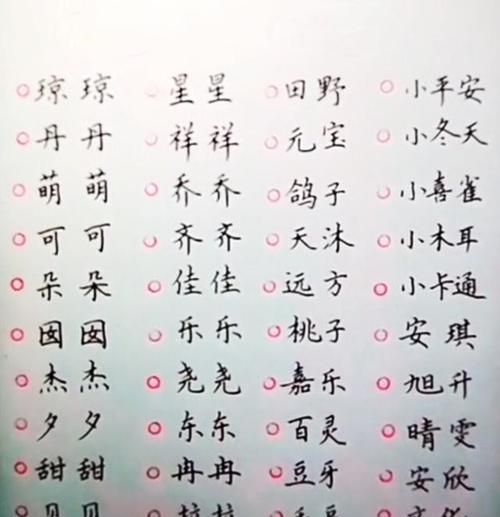 琼琼 星星 田野 小平安
丹丹 祥祥 元宝 小冬天
萌萌 乔乔 鸽子 小喜雀
可可 齐齐 天沐 小木耳
朵朵 佳佳 远方 小卡通
囡囡 乐乐 桃子 安琪
杰杰 尧尧 嘉乐 旭升
夕夕 东东 百灵 晴雯
甜甜 冉冉 豆牙 安欣
贝贝